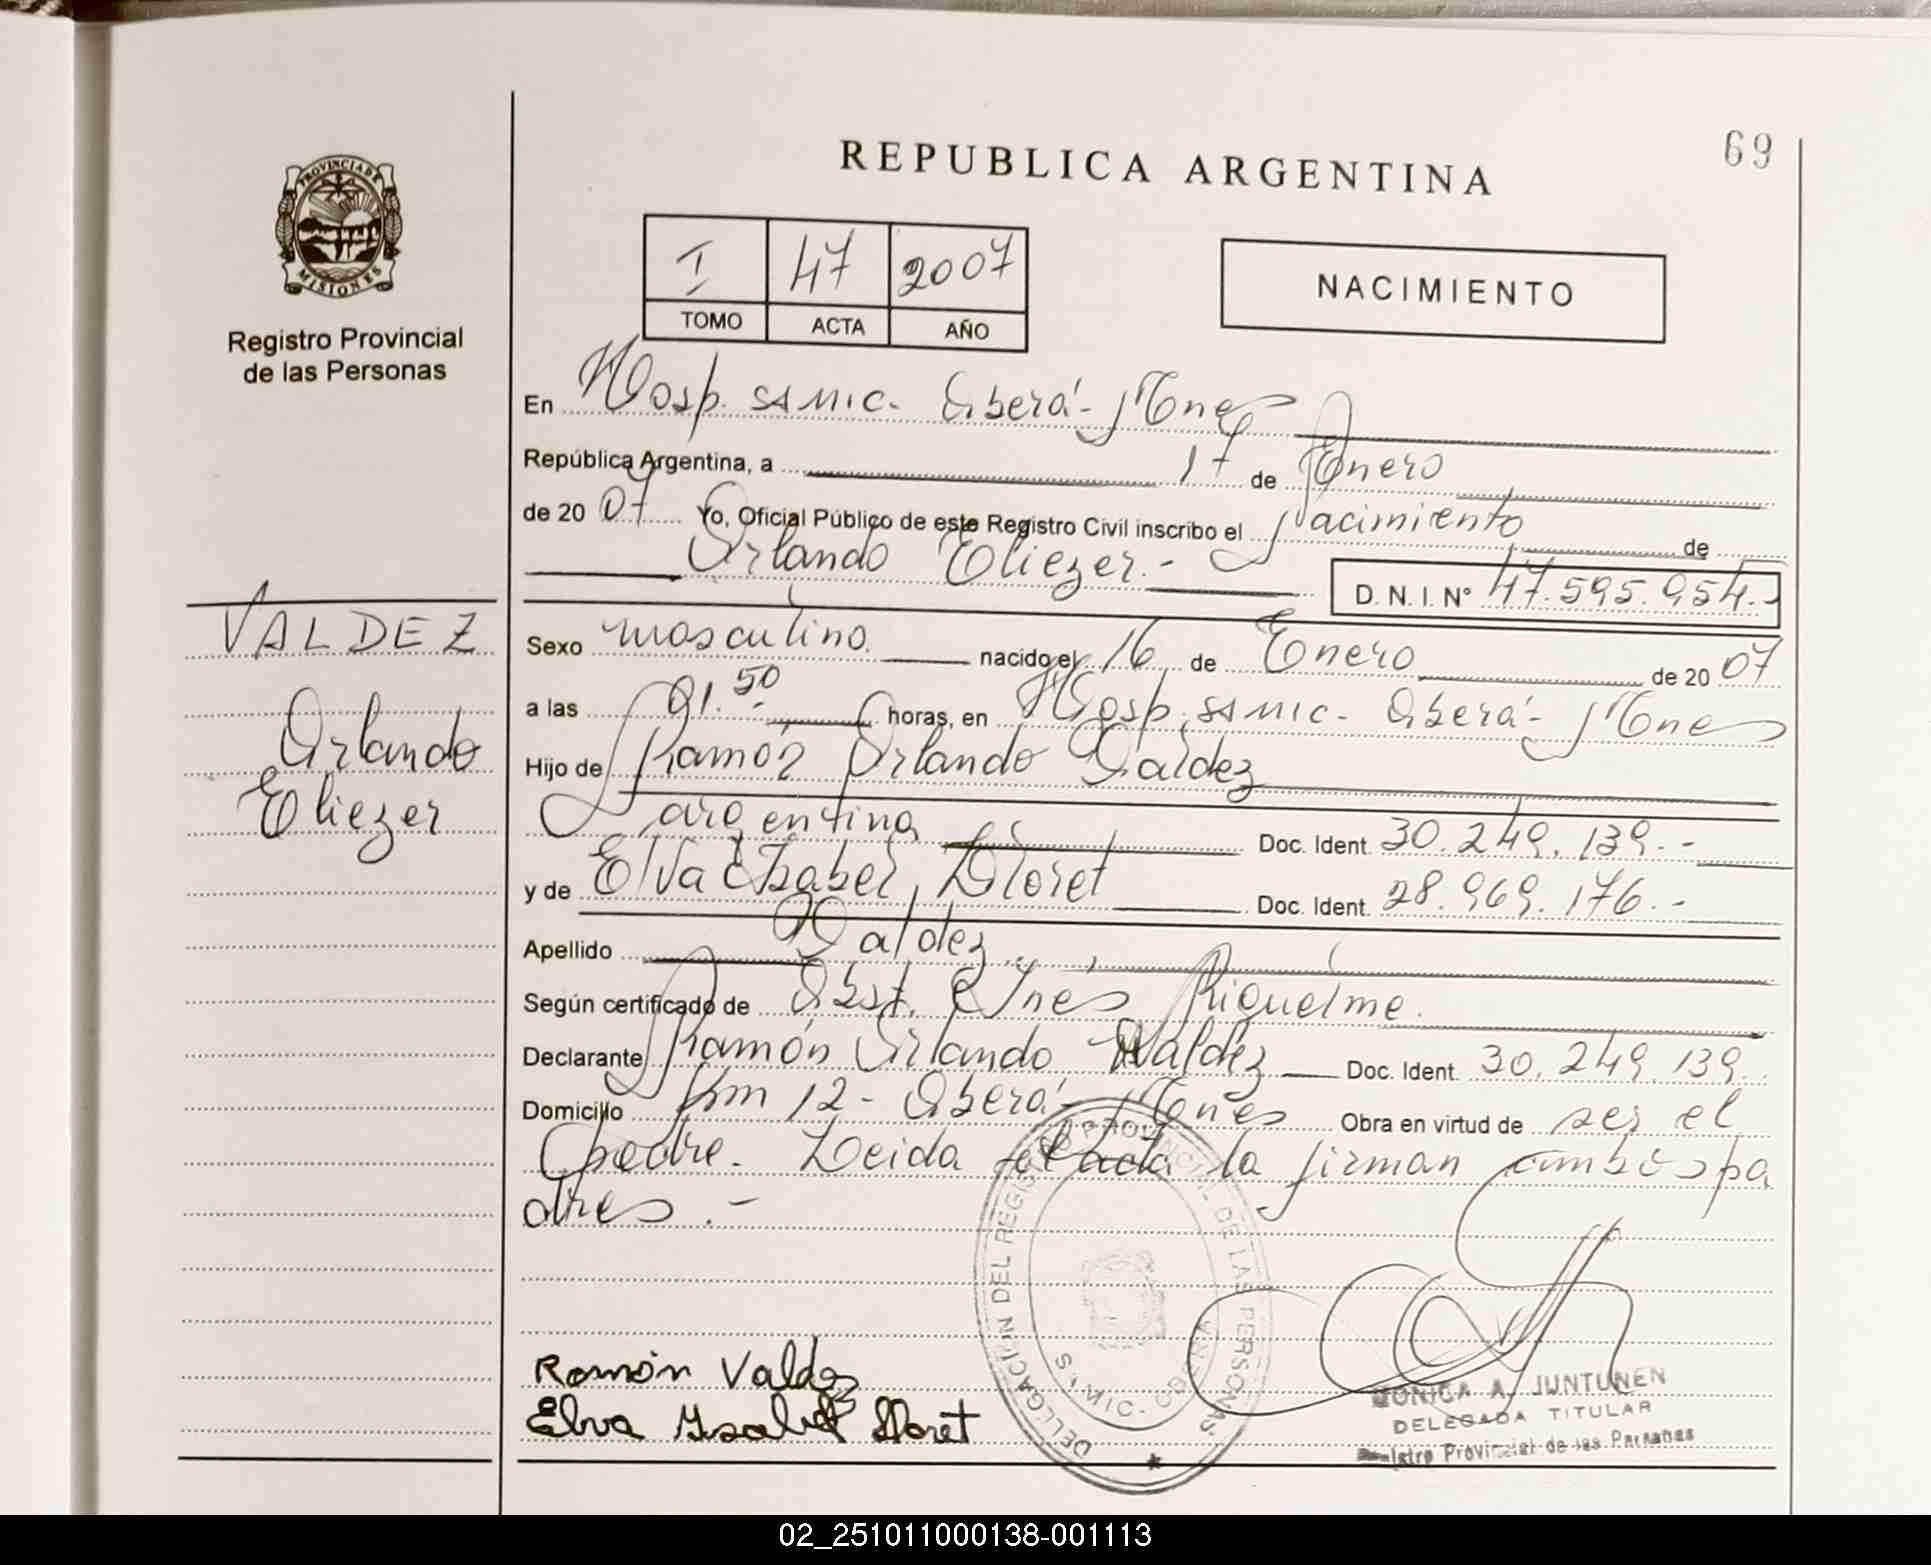 69
REPUBLICA ARGENTINA
PROVINCIA DE MISIONES
Registro Provincial
de las Personas
I 47 2007
TOMO ACTA AÑO
NACIMIENTO
En Hosp. SAMIC. Oberá - Mnes
República Argentina, a 17 de Enero
de 2007 Yo, Oficial Público de este Registro Civil inscribo el Nacimiento de
Orlando Eliezer.-
D.N.I. Nº 47.595.954.-
VALDEZ
Orlando
Eliezer
Sexo masculino. nacido el 16 de Enero de 2007
a las 01.50 horas, en Hosp. SAMIC - Oberá - Mnes
Hijo de Ramón Orlando Valdez
argentina Doc. Ident. 30.249.139.-
y de Elva Isabel Lloret Doc. Ident. 28.969.176.-
Apellido Valdez
Según certificado de Obst. Inés Riquelme.
Declarante Ramón Orlando Valdez Doc. Ident. 30.249.139.
Domicilio Km 12 - Oberá - Mnes Obra en virtud de ser el
padre. Leida el acta la firman ambos pa
dres.-
DELEGACIÓN DEL REGISTRO PROVINCIAL DE LAS PERSONAS
Ramón Valdez
Elva Ysabel lloret
MONICA A. JUNTUNEN
DELEGADA TITULAR
Registro Provincial de las Personas
02_251011000138-001113